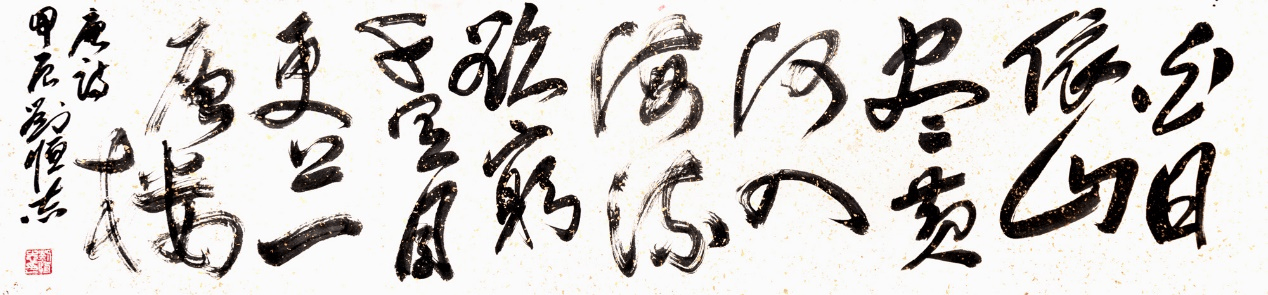 白日
依山
尽黄
河入
海流
欲窮
千里目
更上一
層楼
唐詩
甲辰劉恒志